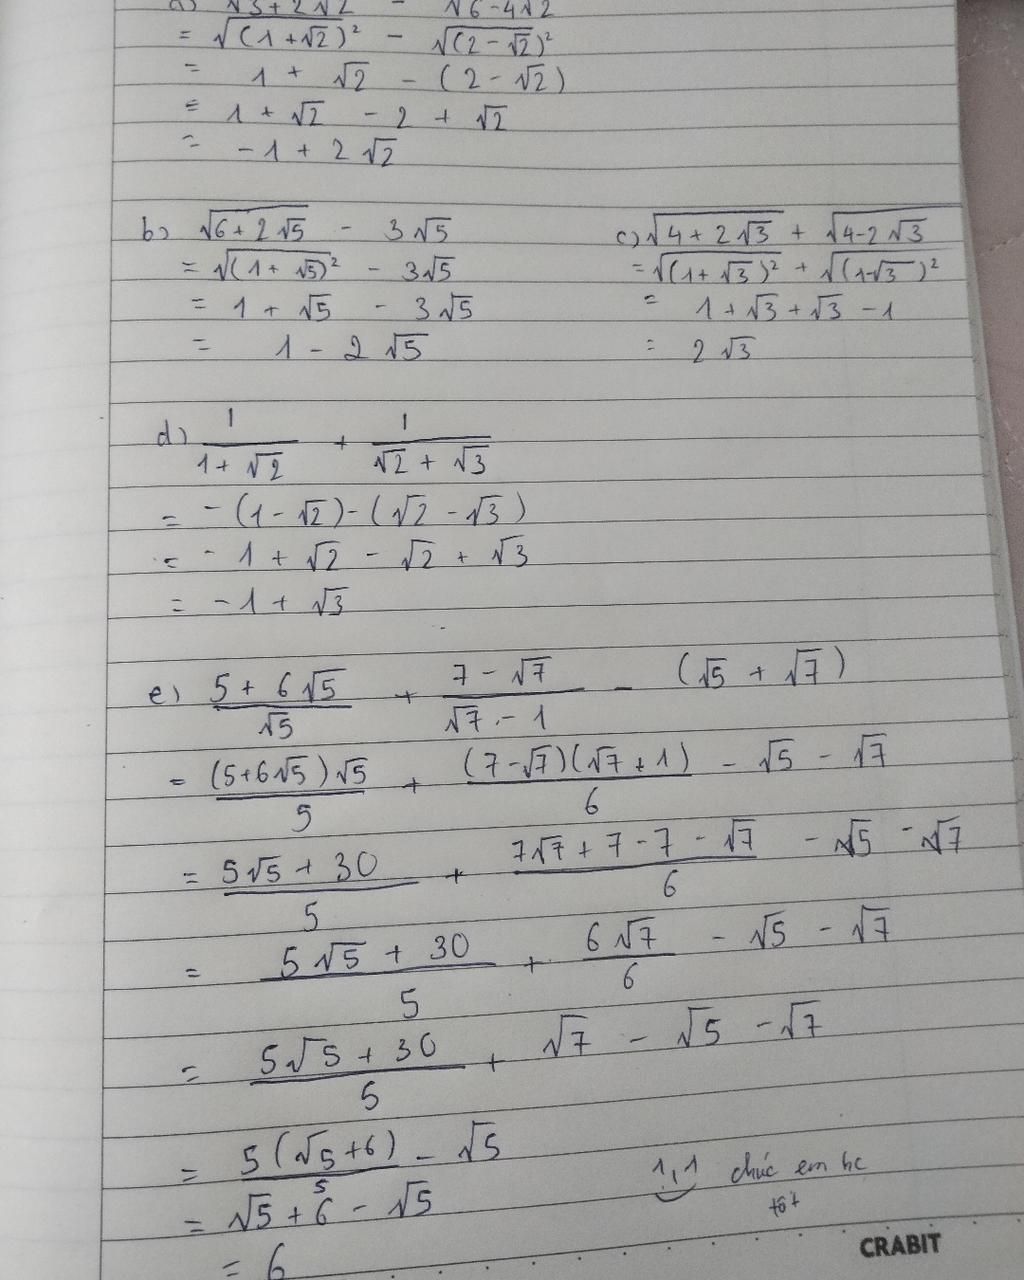 a) √3+2√2 - √6-4√2
= √(1+√2)² - √(2-√2)²
= 1 + √2 - (2-√2)
= 1 + √2 - 2 + √2
= -1 + 2√2
b) √6+2√5 - 3√5
= √(1+√5)² - 3√5
= 1 + √5 - 3√5
= 1 - 2√5
c) √4+2√3 + √4-2√3
= √(1+√3)² + √(1-√3)²
= 1+√3+√3-1
= 2√3
d) 1/(1+√2) + 1/(√2+√3)
= -(1-√2)-(√2-√3)
= -1+√2-√2+√3
= -1+√3
e) (5+6√5)/√5 + (7-√7)/(√7-1) - (√5+√7)
= (5+6√5)√5/5 + (7-√7)(√7+1)/6 - √5 - √7
= (5√5+30)/5 + (7√7+7-7-√7)/6 - √5 - √7
= (5√5+30)/5 + 6√7/6 - √5 - √7
= (5√5+30)/5 + √7 - √5 - √7
= 5(√5+6)/5 - √5
= √5+6-√5
= 6
chúc em hc
tốt
CRABIT